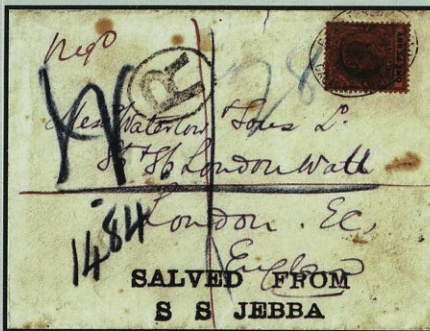 Regd
R
Messrs Waterlow & Sons Ld.
London Wall
London. E.C,
England
1484
SALVED FROM
S S JEBBA